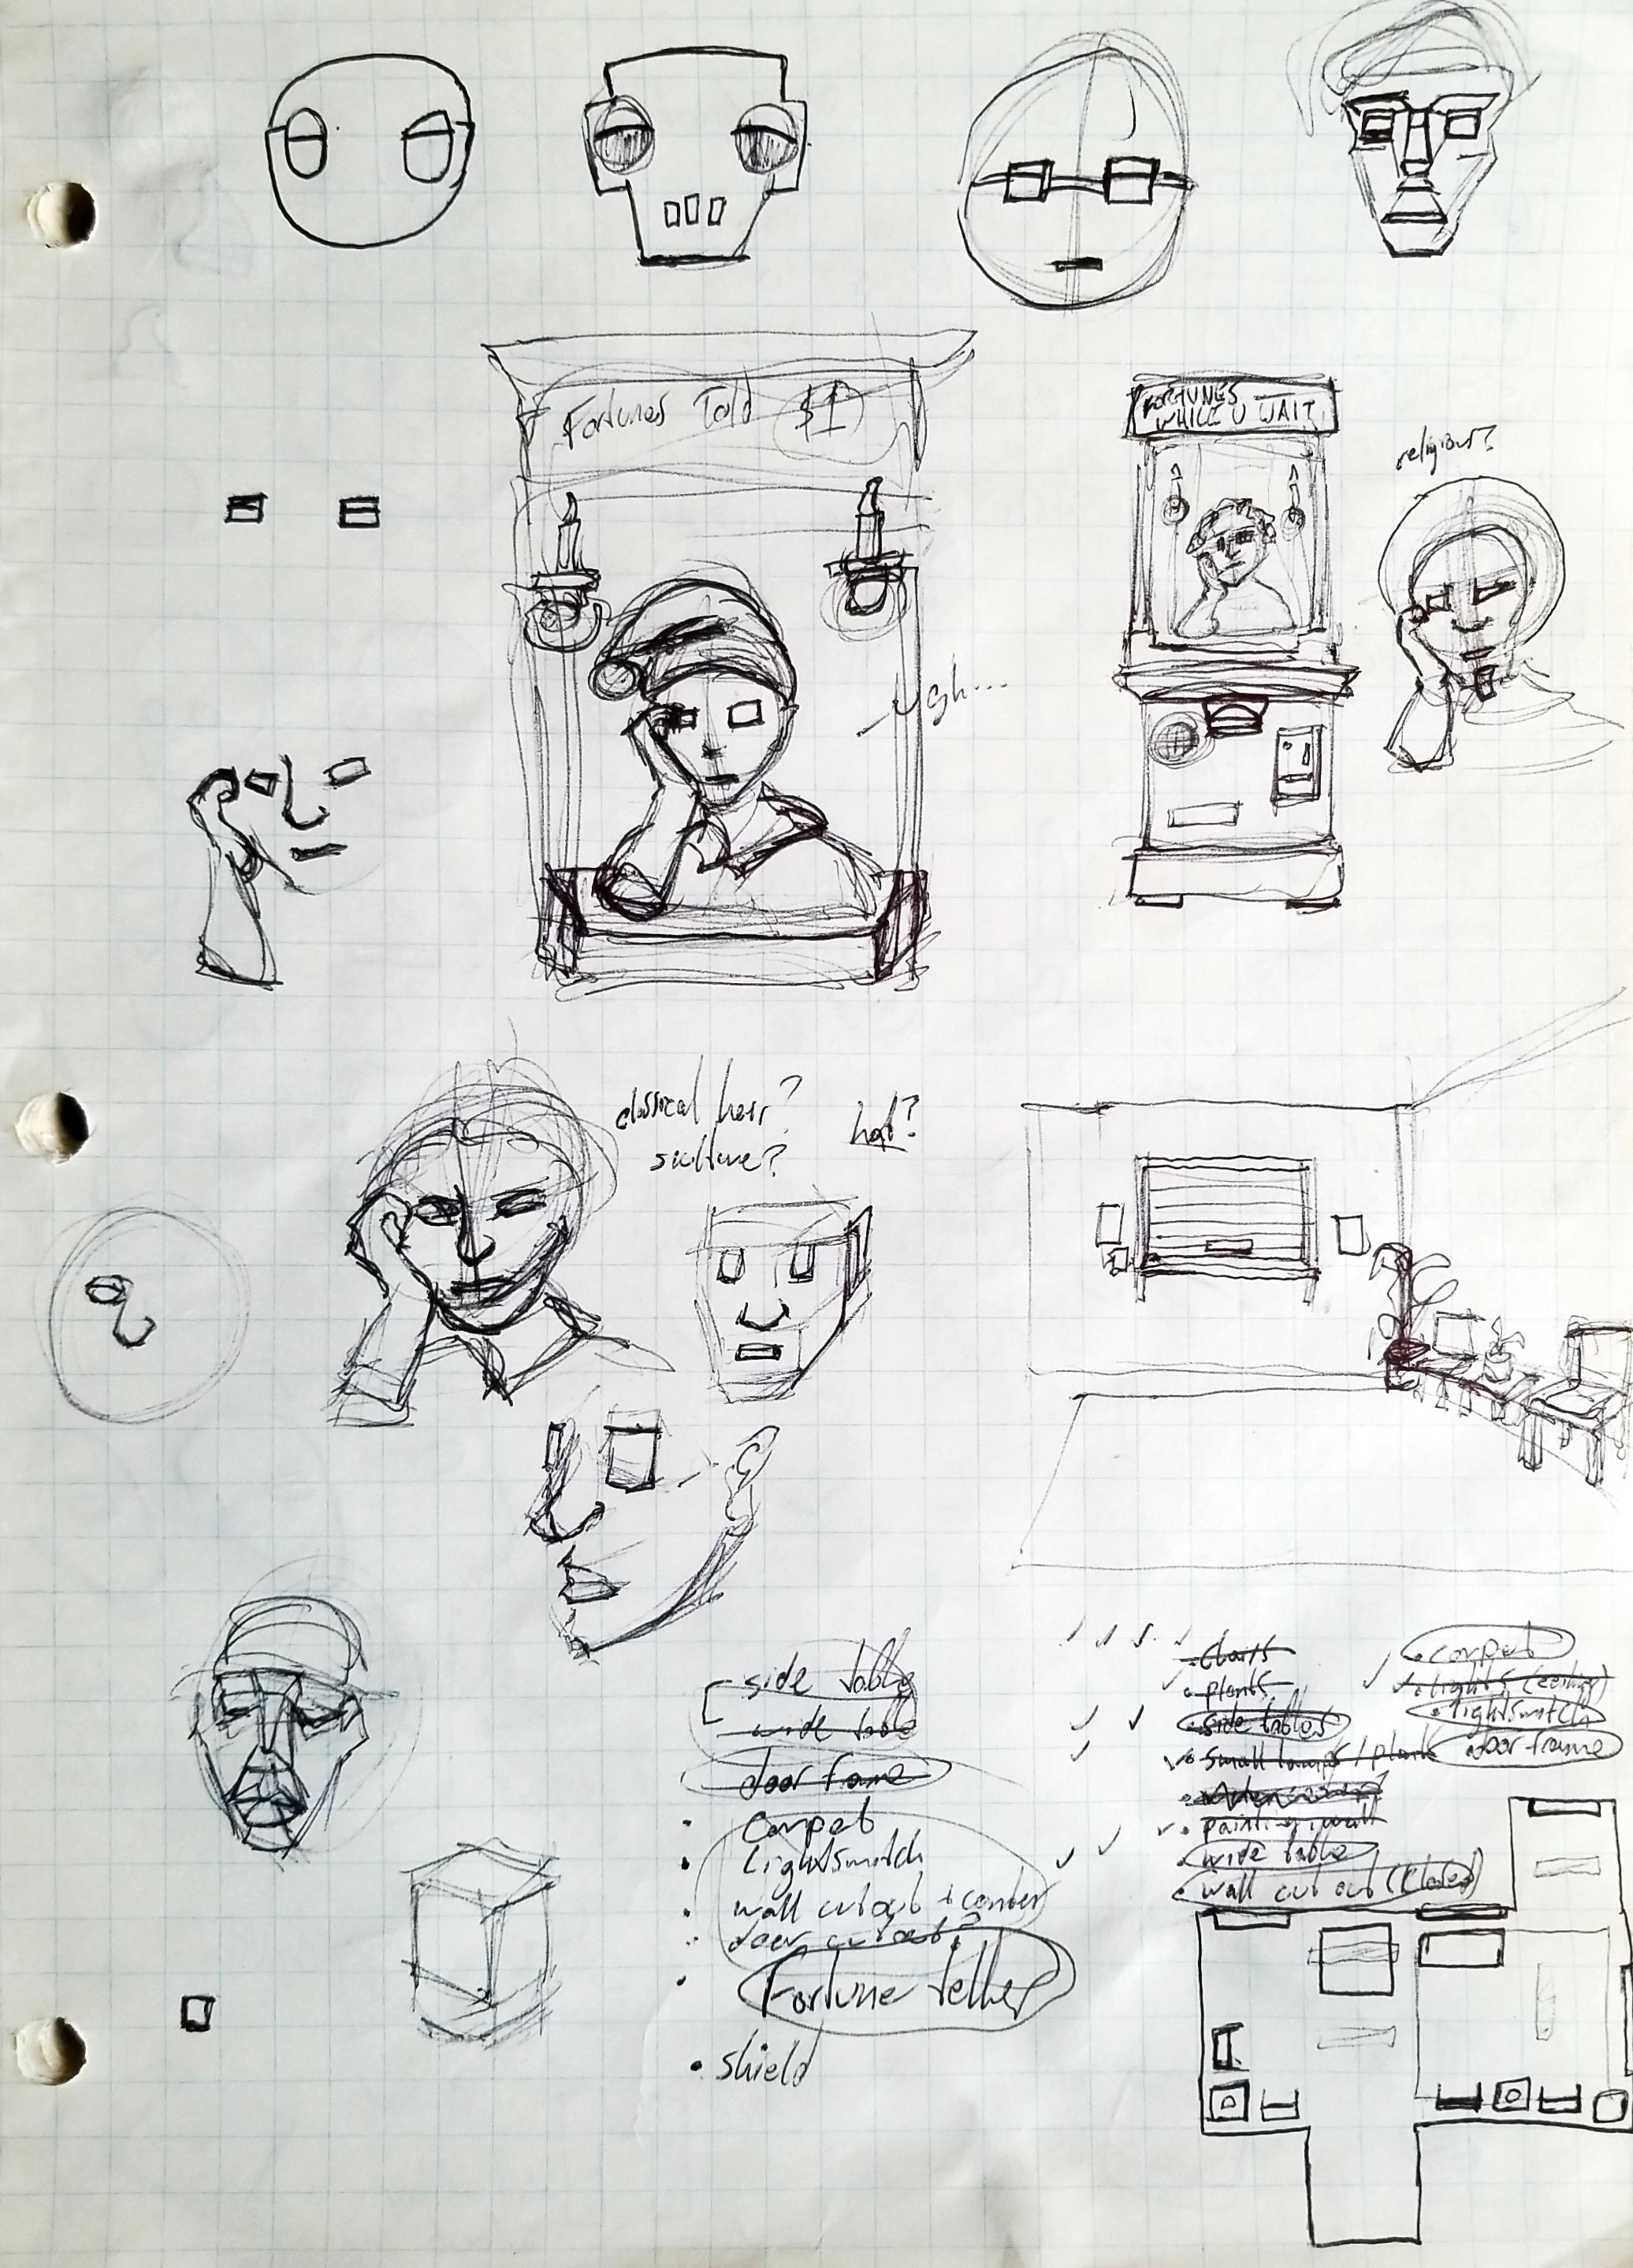 Fortunes Told $1
FORTUNES
WHILE U WAIT
religious?
Ugh...
classical hair?
hat?
side table
wide table
door frame
carpet
lightswitch
wall cutout + center
door cutout?
Fortune teller
• shield
• chairs
• plants
• side tables
• small lamps / plants
• painting: wall
• wide table
• wall cut out (closed)
• carpet
• lights (ceiling)
• lightswitch
door frame